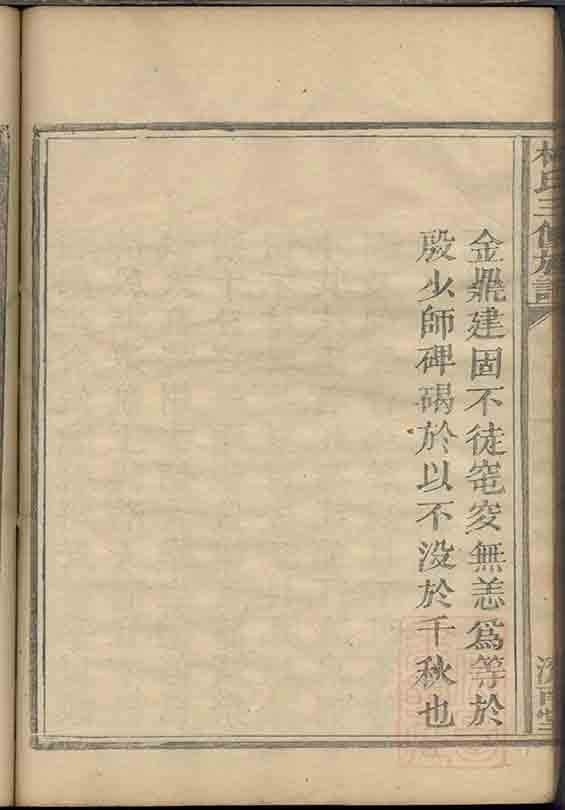 林氏三修族譜
金鼎建固不徒窀穸無恙爲等於
殷少師碑碣於以不没於千秋也